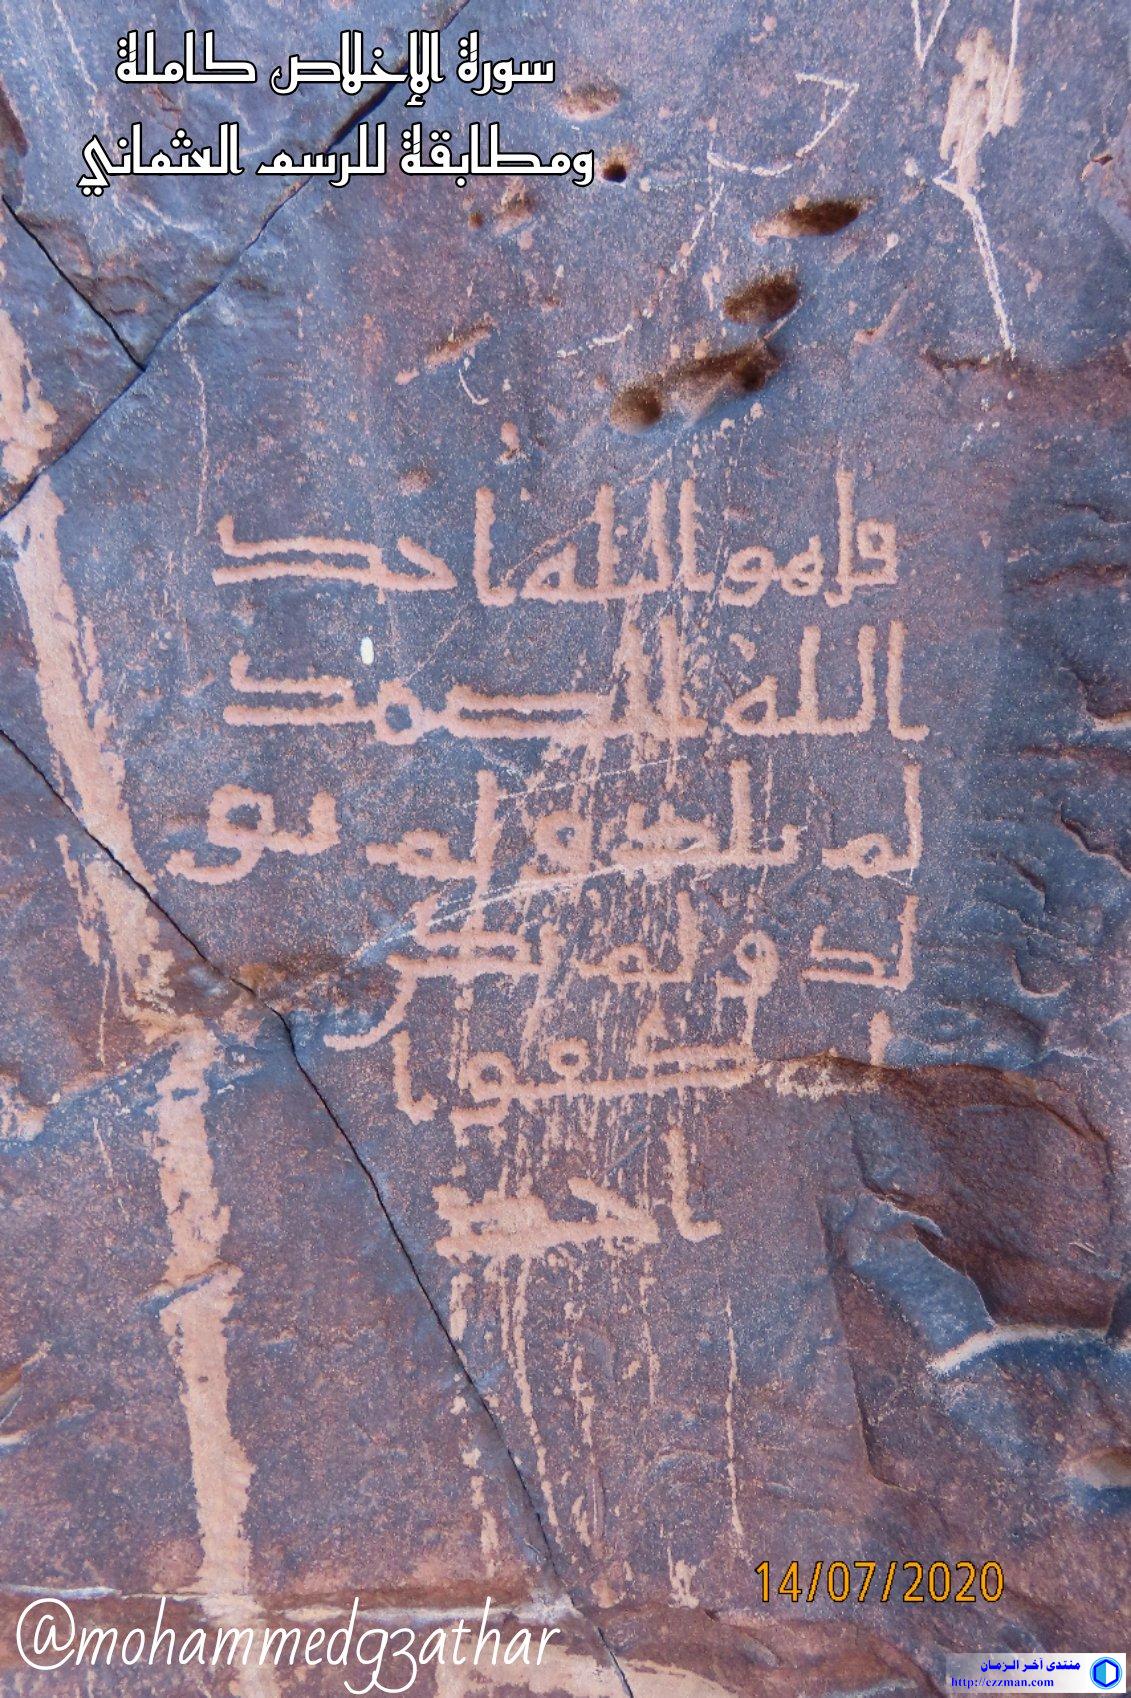 سورة الإخلاص كاملة
ومطابقة للرسم العثماني
قل هو الله احد
الله الصمد
لم يلد و لم يو
لد و لم يكن
له كفوا
احد
14/07/2020
@mohammedgzathar
منتدى آخر الزمان
http://ezzman.com